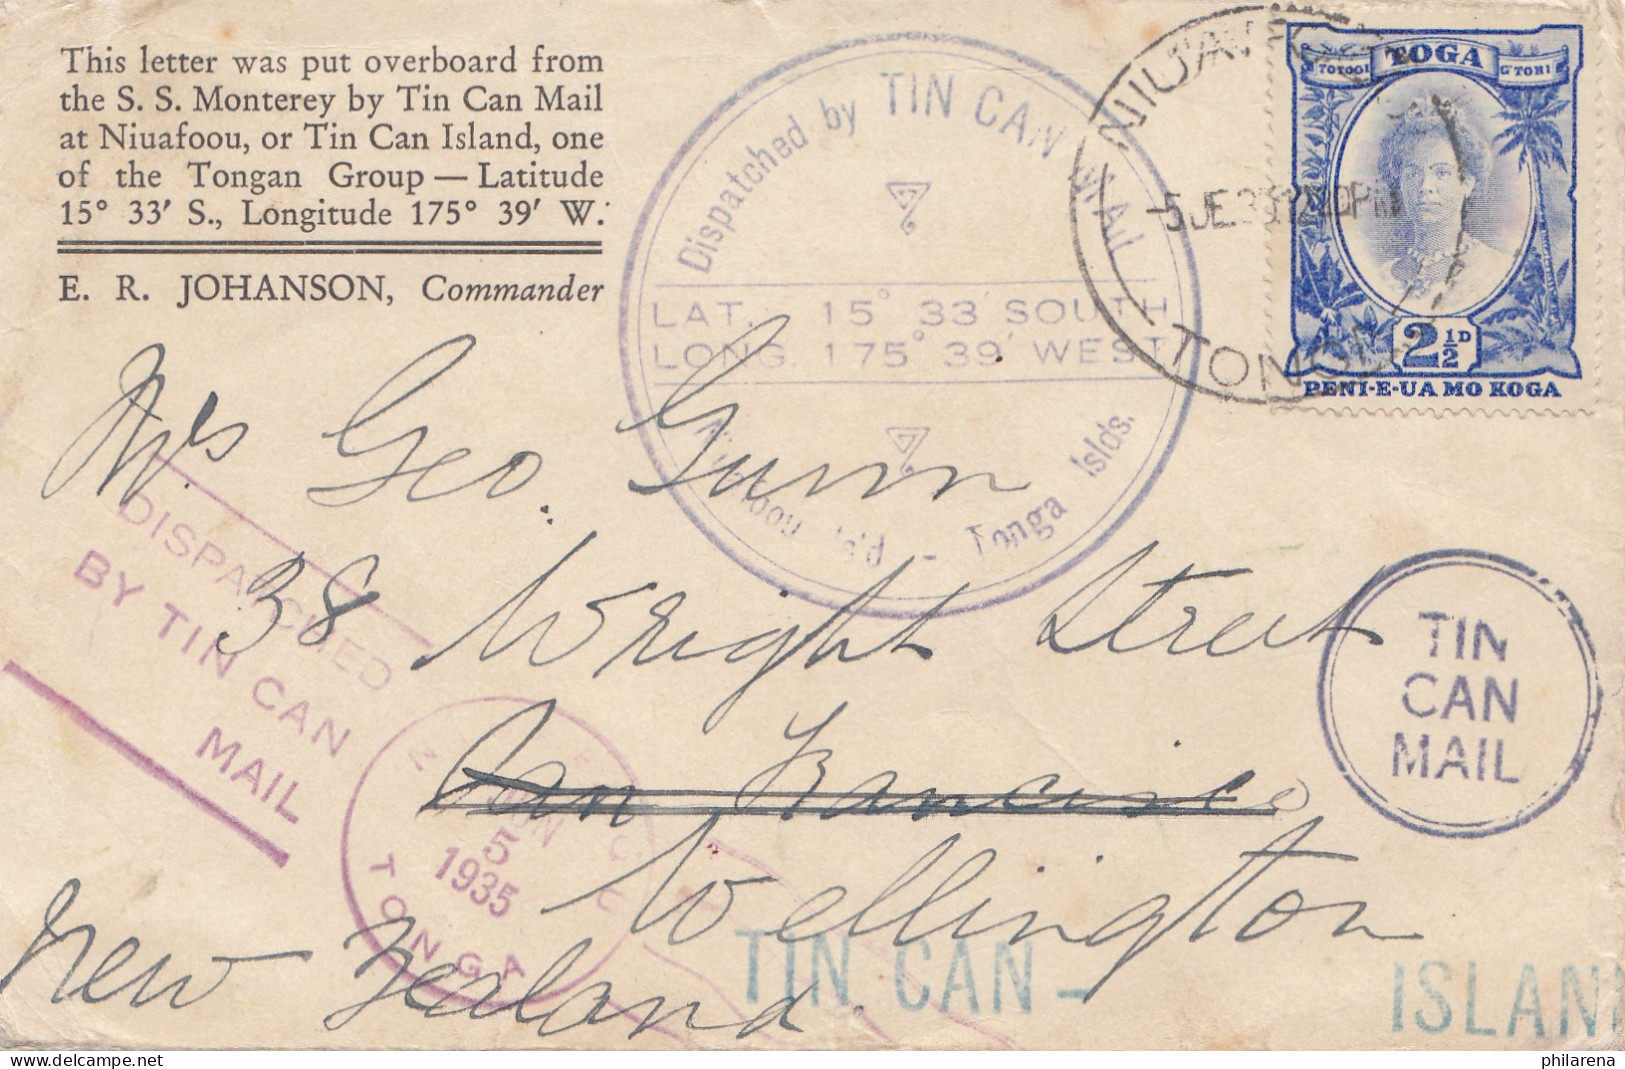 This letter was put overboard from
the S. S. Monterey by Tin Can Mail
at Niuafoou, or Tin Can Island, one
of the Tongan Group — Latitude
15° 33' S., Longitude 175° 39' W.
E. R. JOHANSON, Commander
Dispatched by TIN CAN MAIL
LAT. 15° 33' SOUTH
LONG. 175° 39' WEST
Niuafoou Isl'd - Tonga Islds.
NIUAFOOU
-5 JE 35 12 PM
TONGA
TOGA
TOTOGI G'TOHI
2½D
PENI-E-UA MO KOGA
Mrs Geo. Gunn
38 Wright Street
San Francisco
Wellington
New Zealand.
DISPATCHED
BY TIN CAN
MAIL
JUN
5
1935
TONGA
TIN
CAN
MAIL
TIN CAN - ISLAN
philarena